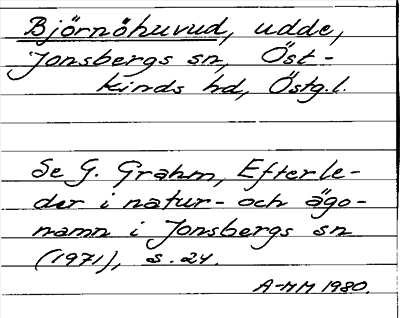 Björnöhuvud, udde,
Jonsbergs sn, Öst-
kinds hd, Östg.l.
Se G. Grahm, Efterle-
der i natur- och ägo-
namn i Jonsbergs sn
(1971), s. 24.
A-MM 1980.